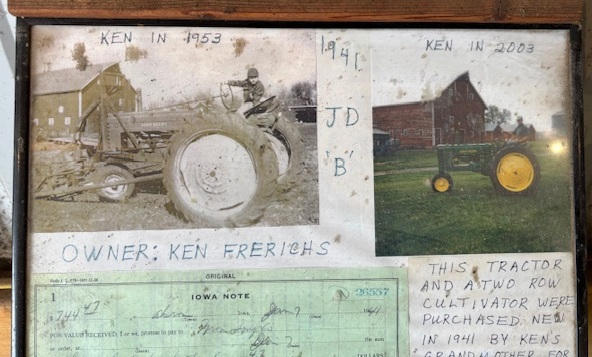 KEN IN 1953
1941
JD
"B"
KEN IN 2003
OWNER: KEN FRERICHS
ORIGINAL
1
IOWA NOTE
26557
$ 744
Jan 7
1941
FOR VALUE RECEIVED, I or we, promise to pay to
or order, at
DOLLARS
THIS TRACTOR
AND A TWO ROW
CULTIVATOR WERE
PURCHASED NEW
IN 1941 BY KEN'S
GRANDMOTHER FOR